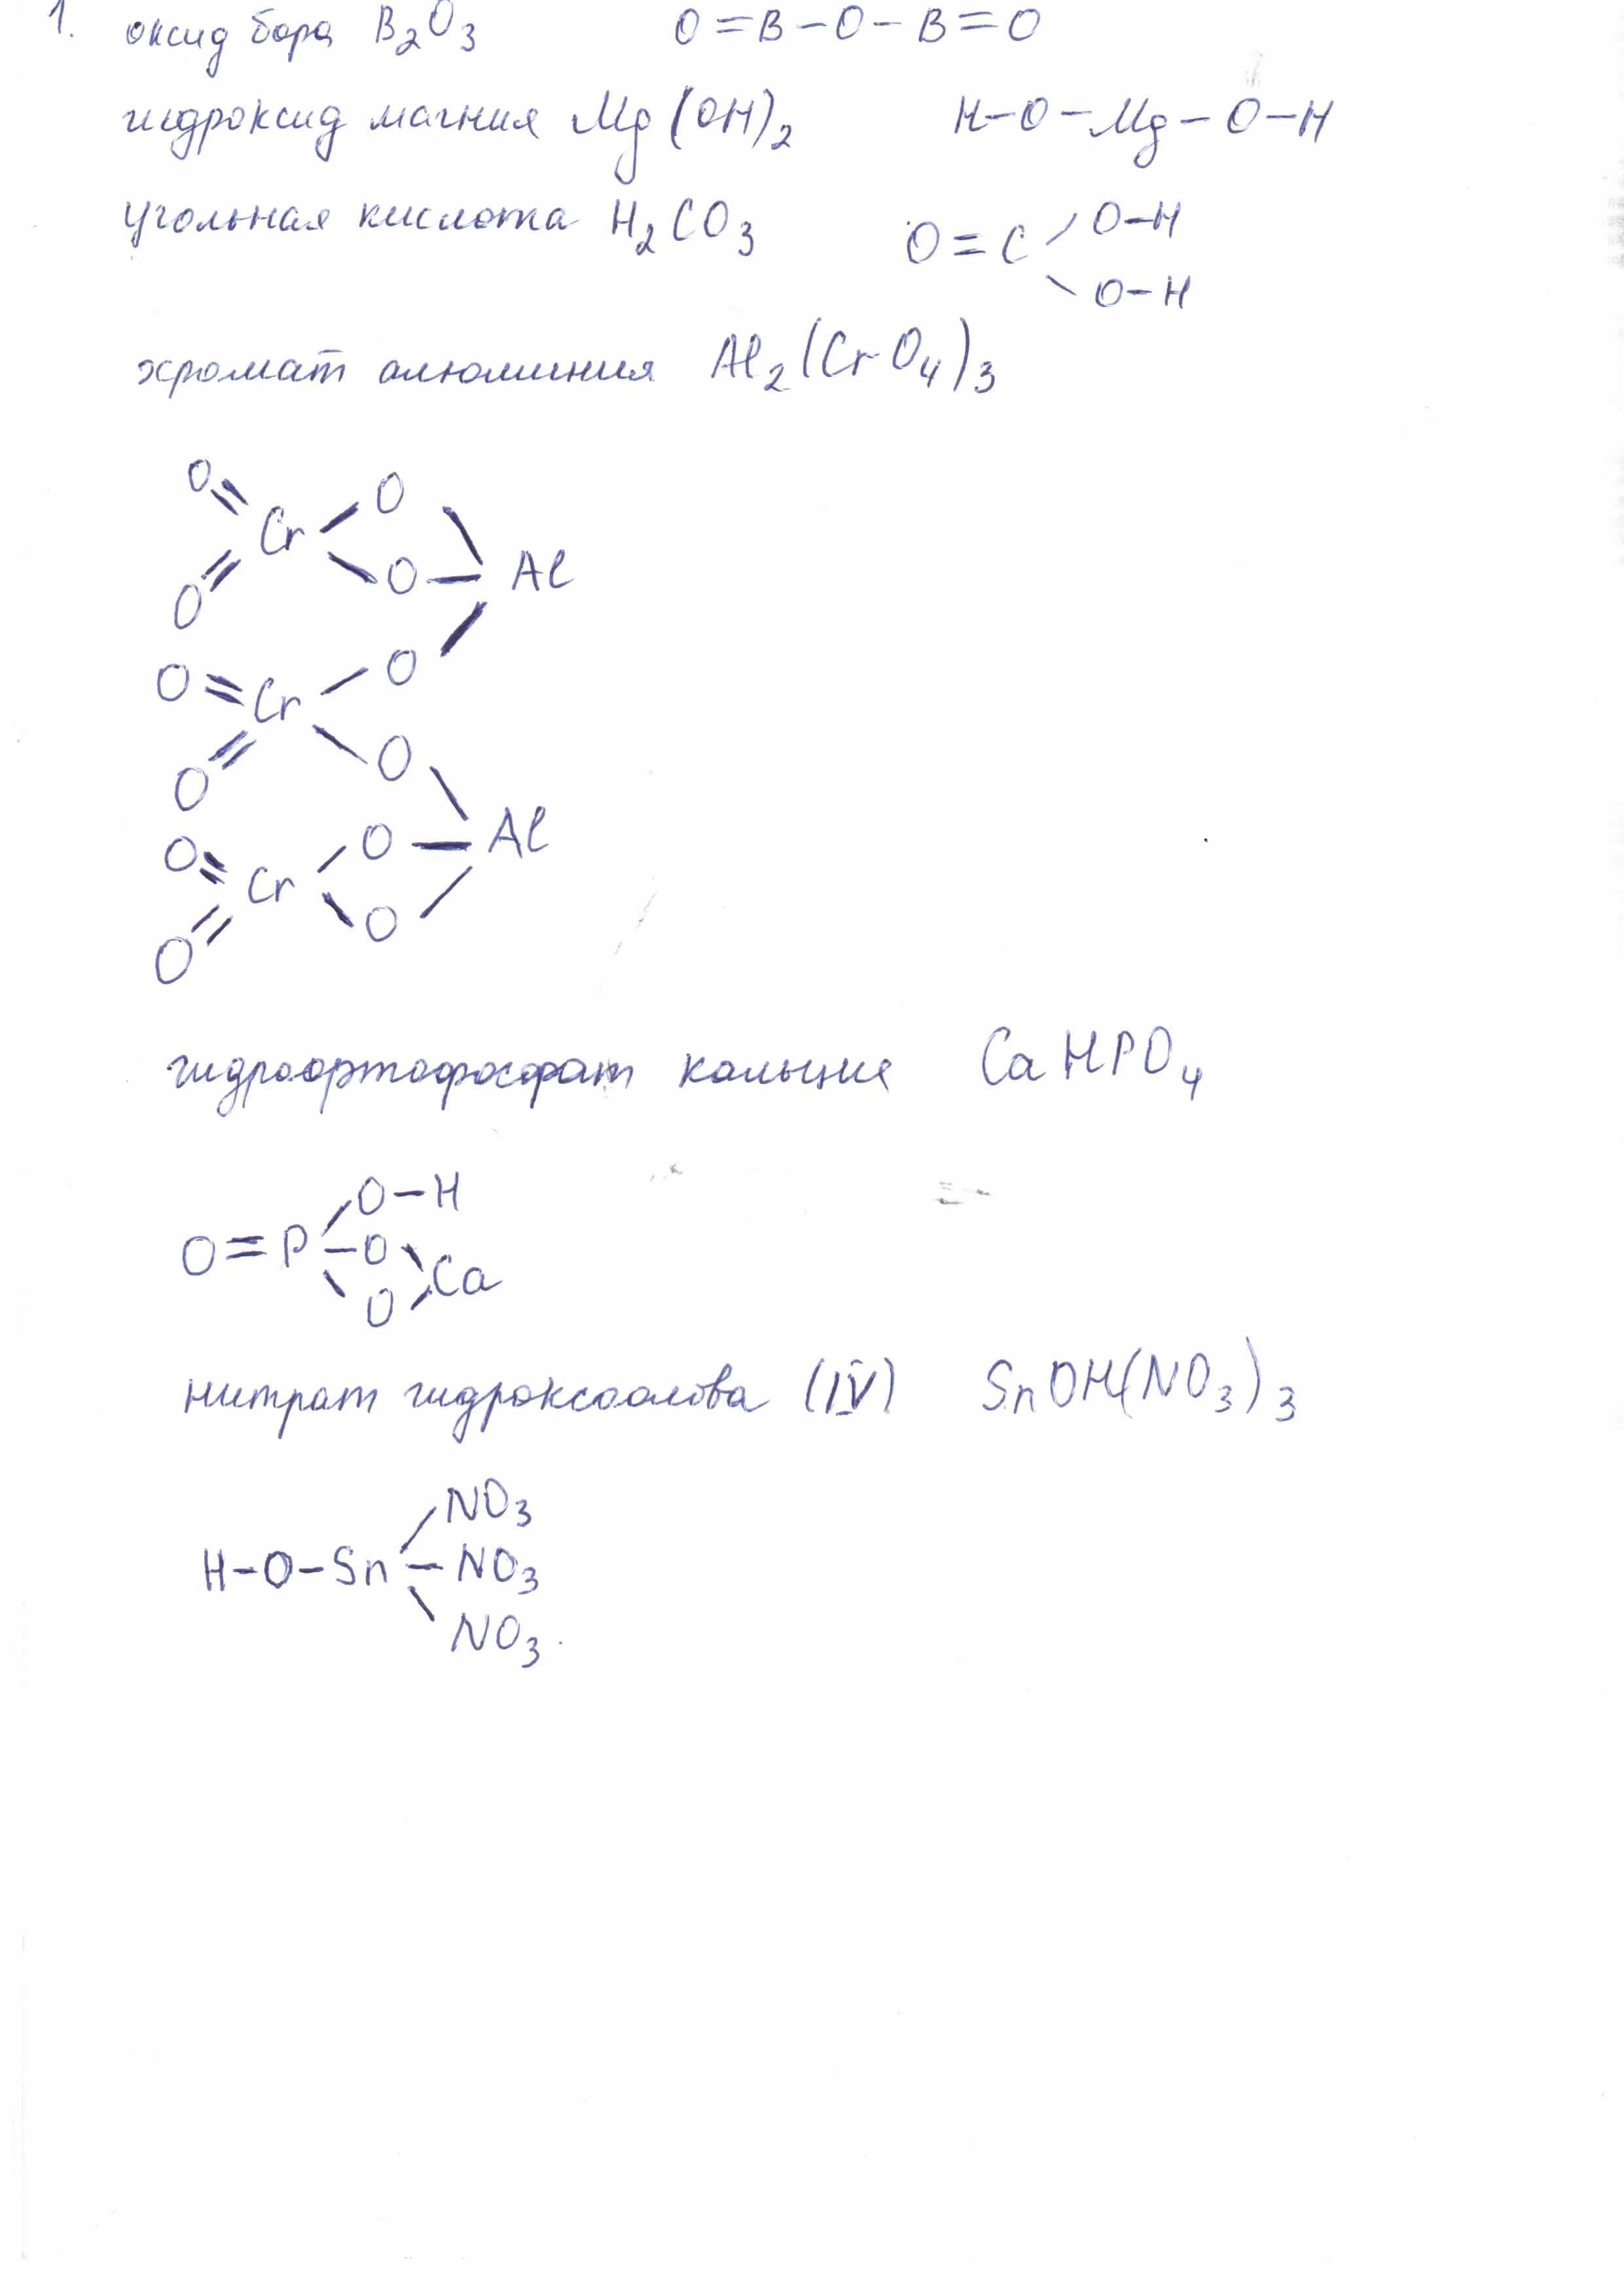 1. оксид бора B₂O₃ O=B-O-B=O
гидроксид магния Mg(OH)₂ H-O-Mg-O-H
угольная кислота H₂CO₃ O=C O-H
O-H
хромат алюминия Al₂(CrO₄)₃
O O
Cr
O O Al
O Cr O
O O
O Cr O Al
O O
гидроортофосфат кальция CaHPO₄
O-H
O=P-O
O Ca
нитрат гидроксоолова (IV) SnOH(NO₃)₃
NO₃
H-O-Sn-NO₃
NO₃.